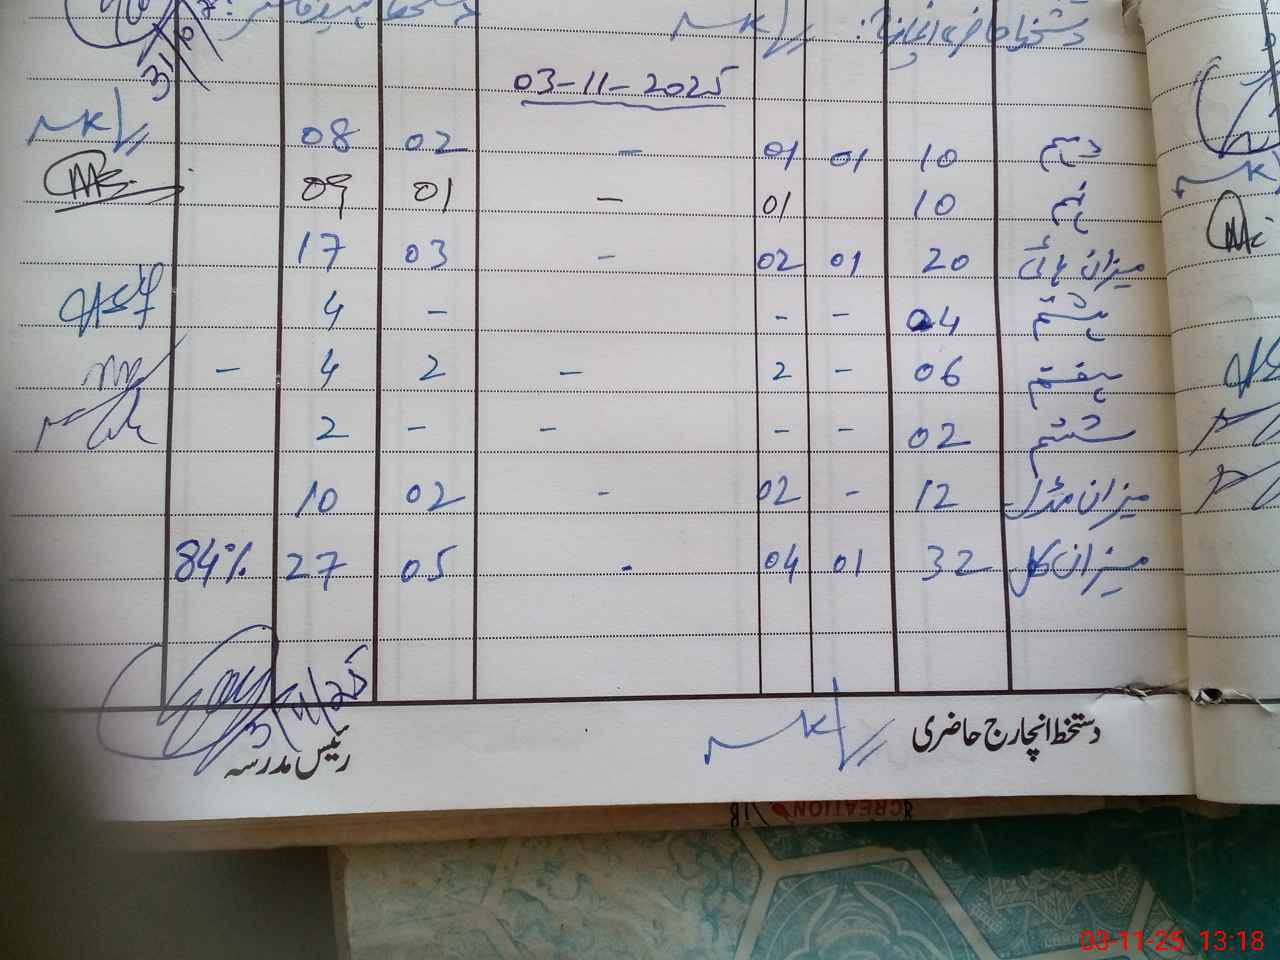 دستخط
03-11-2025
دہم 10 01 01 - 02 08
نہم 10 01 - 01 09
میزان ہائی 20 01 02 - 03 17
ہشتم 04 - - - 4
ہفتم 06 - 2 - 2 4 -
ششم 02 - - - - 2
میزان مڈل 12 - 02 - 02 10
میزان کل 32 01 04 - 05 27 84%
دستخط انچارج حاضری
رئیس مدرسہ
3/11/25
CREATION
03-11-25 13:18